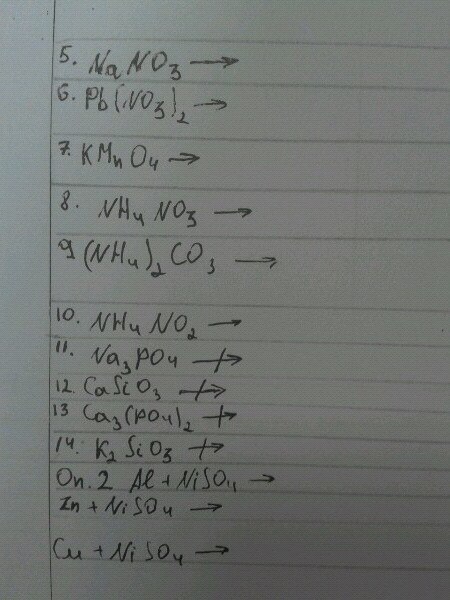 5. NaNO3 →
6. Pb(NO3)2 →
7. KMnO4 →
8. NH4NO3 →
9 (NH4)2CO3 →
10. NH4NO2 →
11. Na3PO4 ↛
12 CaSiO3 ↛
13 Ca3(PO4)2 ↛
14. K2SiO3 ↛
On. 2 Al + NiSO4 →
Zn + NiSO4 →
Cu + NiSO4 →